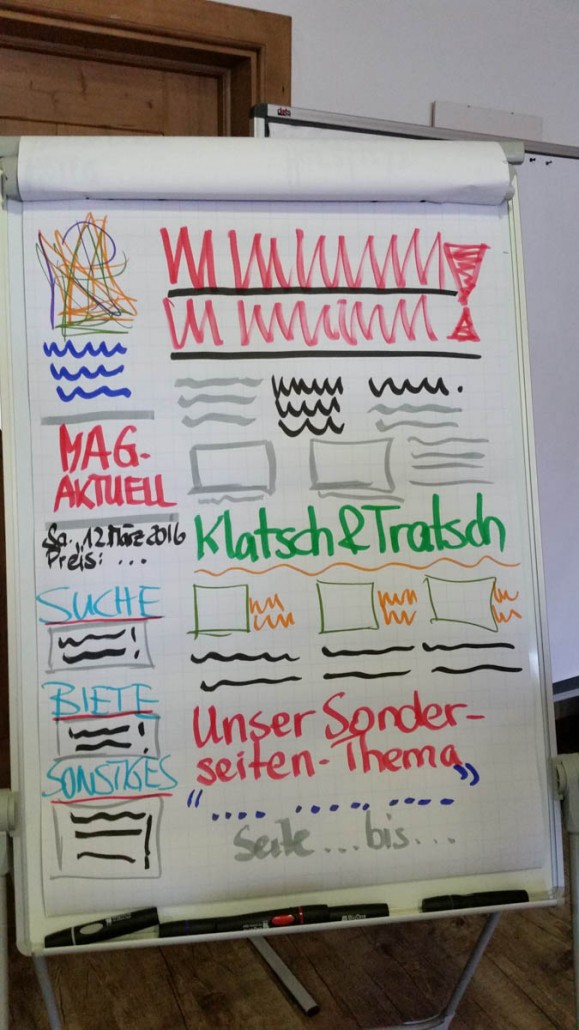 MAG-
AKTUELL
Sa. 12. März 2016
Preis: ...
SUCHE
!
BIETE
!
SONSTIGES
Klatsch & Tratsch
Unser Sonder-
seiten-Thema
„ .... ..... ..... "
Seite ... bis ...